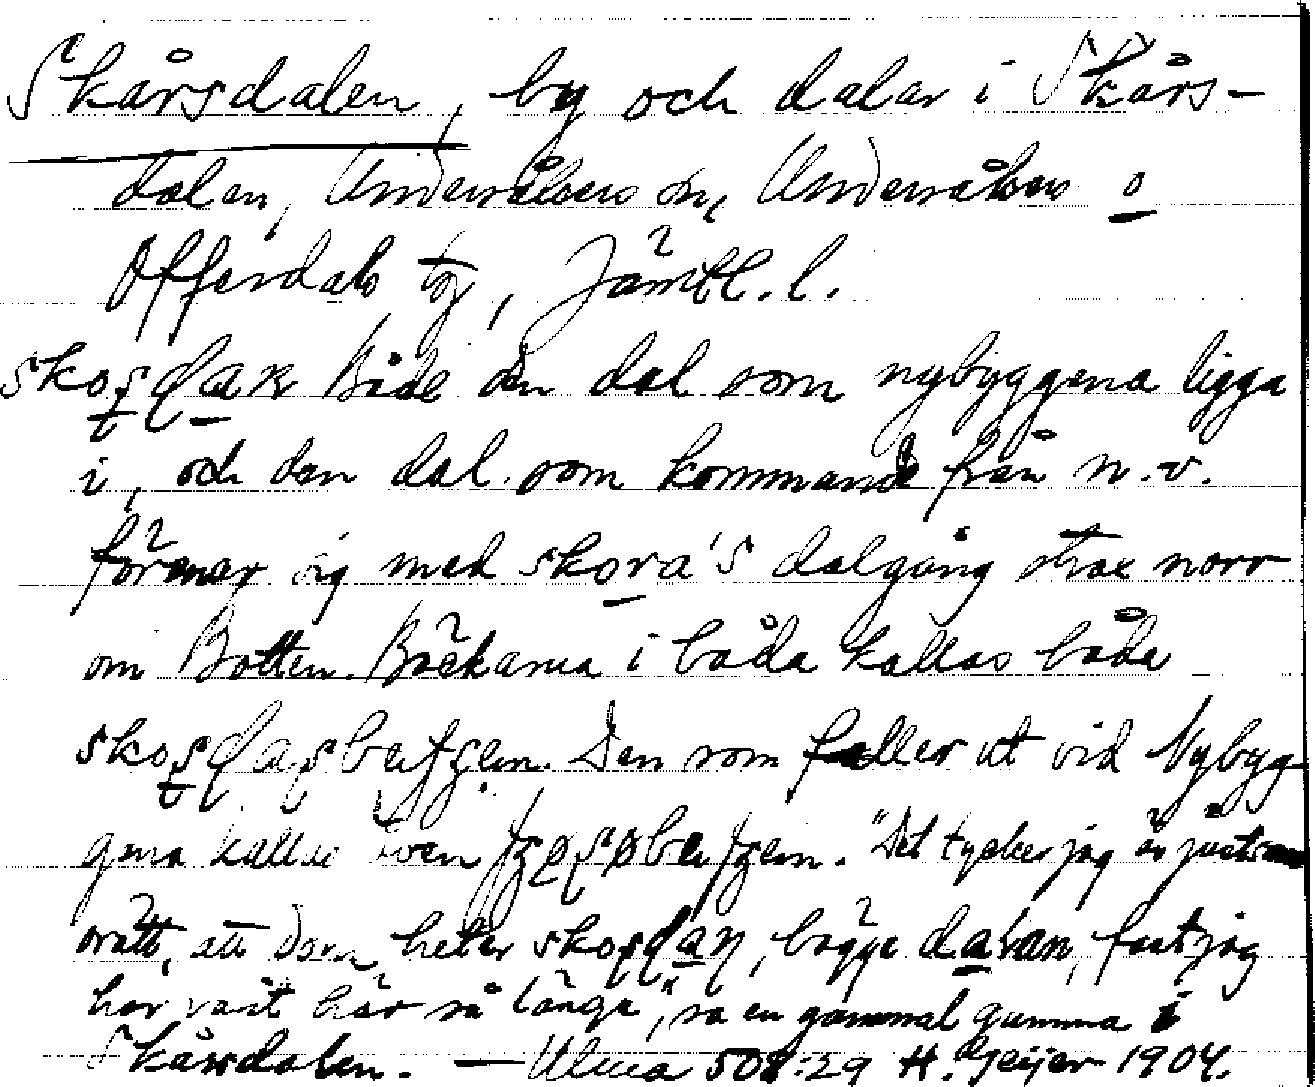 Skårsdalen, by och dalar i Skårs-
dalen, Undersåkers sn, Undersåkers o
Offerdals tg, Jämtl. l.
skoʂɖan Både den dal som nybyggena ligga
i, och den dal som kommande från n.v.
förenar sig med skora's dalgång strax norr
om Botten. Bäckarna i båda kallas båda
Den som faller ut vid Nybyg-
gena kallas även "Det tycker jag är just som
orätt, att dom heter skoʂɖan, bägge dalan, fast jag
har vart här så länge", sa en gammal gumma i
Skårsdalen. — Ulma 508:29 H. Geijer 1904.